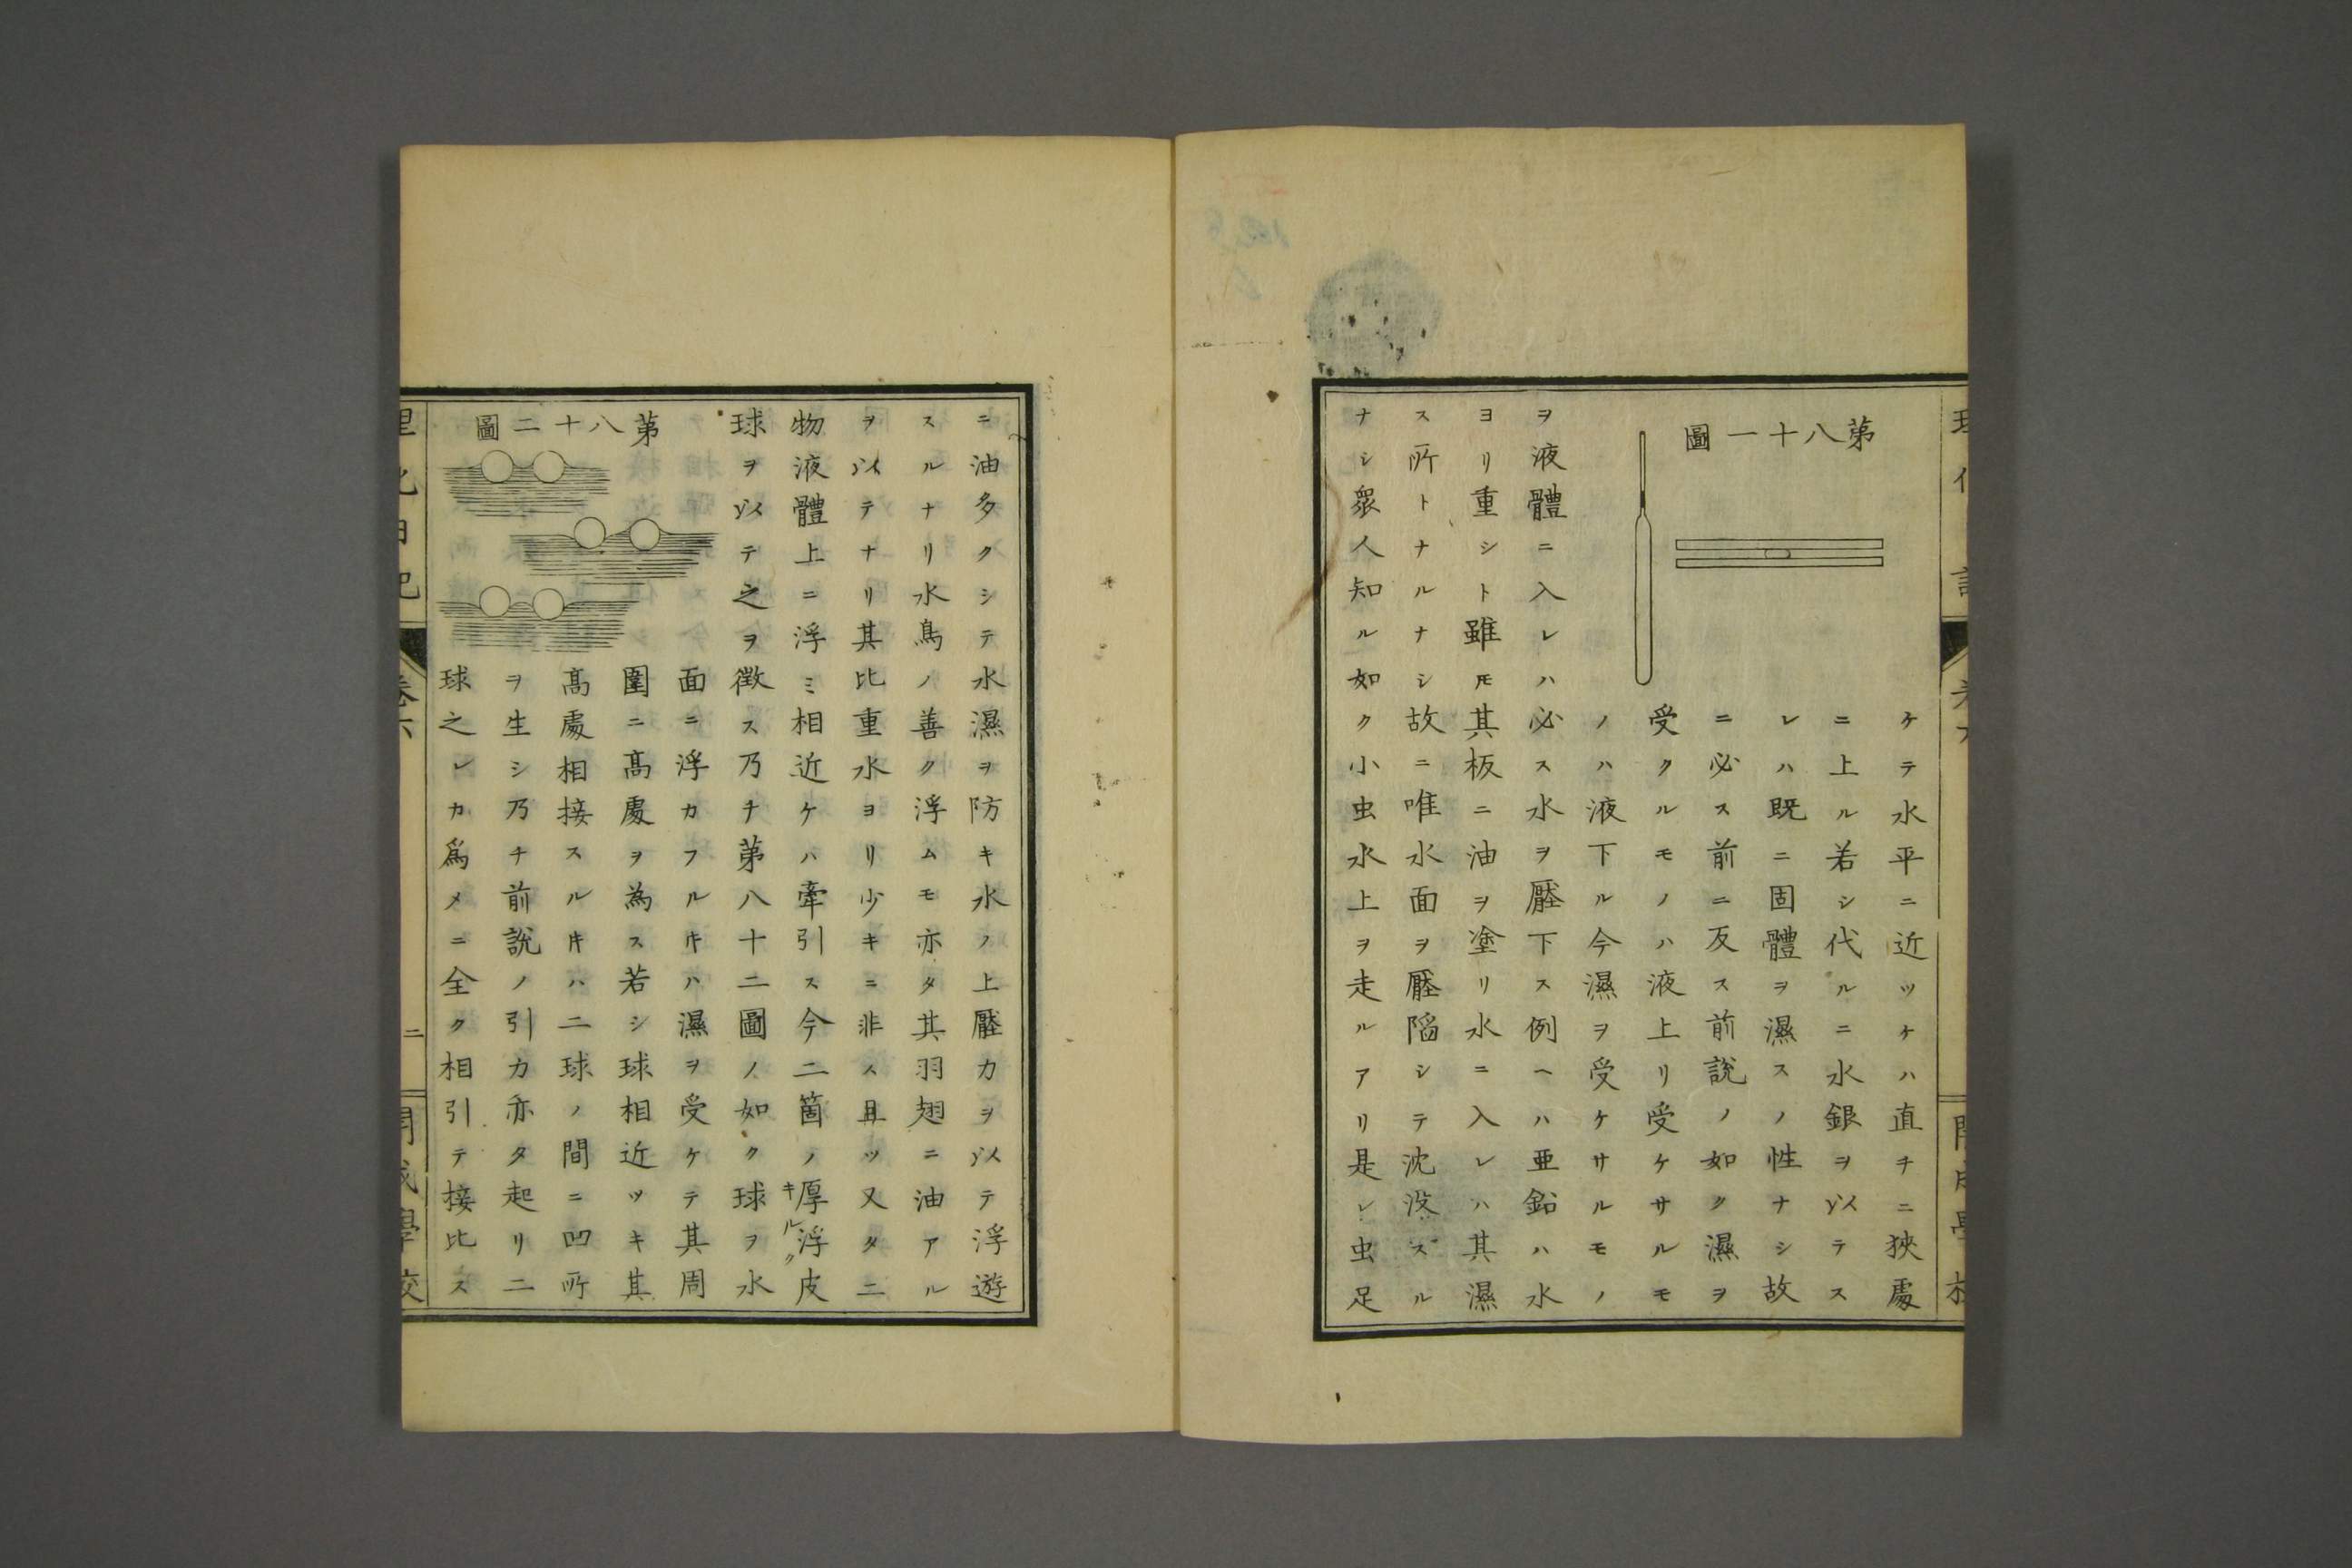 第八十一圖
ケテ水平ニ近ツケハ直チニ狹處
ニ上ル若シ代ルニ水銀ヲ以テス
レハ既ニ固體ヲ濕スノ性ナシ故
ニ必ス前ニ反ス前說ノ如ク濕ヲ
受クルモノハ液上リ受ケサルモ
ノハ液下ル今濕ヲ受ケサルモノ
ヲ液體ニ入レハ必ス水ヲ壓下ス例ヘハ亜鉛ハ水
ヨリ重シト雖𪜈其板ニ油ヲ塗リ水ニ入レハ其濕
ス所トナルナシ故ニ唯水面ヲ壓陷シテ沈沒スル
ナシ衆人知ル如ク小虫水上ヲ走ルアリ是レ虫足
ニ油多クシテ水濕ヲ防キ水ノ上壓力ヲ以テ浮遊
スルナリ水鳥ノ善ク浮ムモ亦タ其羽翅ニ油アル
ヲ以テナリ其比重水ヨリ少キニ非ス且ツ又タ二
物液體上ニ浮ミ相近ケハ牽引ス今二箇ノ厚浮皮
キルク
球ヲ以テ之ヲ徴ス乃チ第八十二圖ノ如ク球ヲ水
第八十二圖
面ニ浮カフルキハ濕ヲ受ケテ其周
圍ニ髙處ヲ為ス若シ球相近ツキ其
髙處相接スルキハ二球ノ間ニ凹所
ヲ生シ乃チ前說ノ引力亦タ起リ二
球之レカ爲メニ全ク相引テ接比ス
理化日記
卷六
二
開成學校